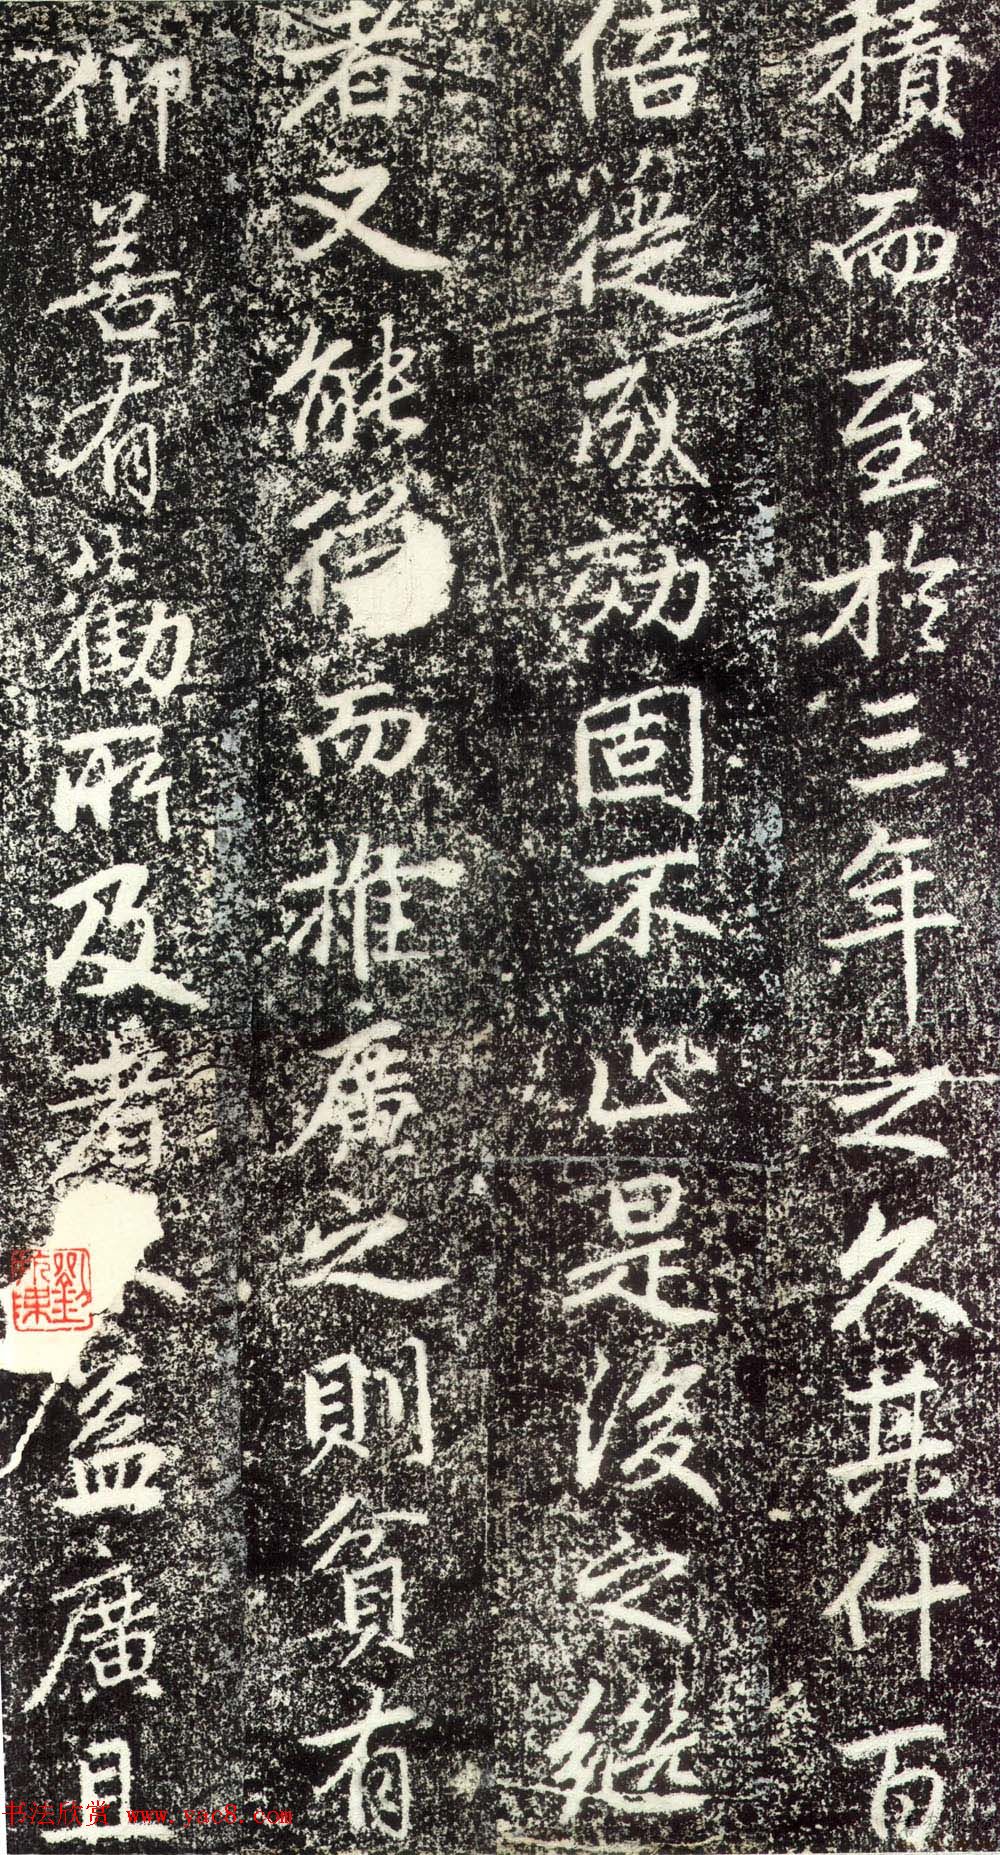 積而至於三年之久其什百
倍徙成効固不止是後之繼
者又能而推廣之則貧有
仰善有勸所及者益廣且
书法欣赏 www.yac8.com